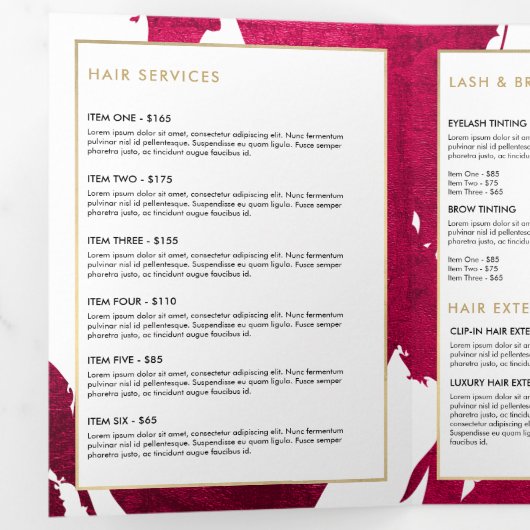 HAIR SERVICES
ITEM ONE - $165
Lorem ipsum dolor sit amet, consectetur adipiscing elit. Nunc fermentum
pulvinar nisl id pellentesque. Suspendisse eu quam ligula. Fusce semper
pharetra justo, ac tincidunt augue faucibus id.
ITEM TWO - $175
Lorem ipsum dolor sit amet, consectetur adipiscing elit. Nunc fermentum
pulvinar nisl id pellentesque. Suspendisse eu quam ligula. Fusce semper
pharetra justo, ac tincidunt augue faucibus id.
ITEM THREE - $155
Lorem ipsum dolor sit amet, consectetur adipiscing elit. Nunc fermentum
pulvinar nisl id pellentesque. Suspendisse eu quam ligula. Fusce semper
pharetra justo, ac tincidunt augue faucibus id.
ITEM FOUR - $110
Lorem ipsum dolor sit amet, consectetur adipiscing elit. Nunc fermentum
pulvinar nisl id pellentesque. Suspendisse eu quam ligula. Fusce semper
pharetra justo, ac tincidunt augue faucibus id.
ITEM FIVE - $85
Lorem ipsum dolor sit amet, consectetur adipiscing elit. Nunc fermentum
pulvinar nisl id pellentesque. Suspendisse eu quam ligula. Fusce semper
pharetra justo, ac tincidunt augue faucibus id.
ITEM SIX - $65
Lorem ipsum dolor sit amet, consectetur adipiscing elit. Nunc fermentum
pulvinar nisl id pellentesque. Suspendisse eu quam ligula. Fusce semper
pharetra justo, ac tincidunt augue faucibus id.
LASH & BR
EYELASH TINTING
Lorem ipsum dolor sit am
pulvinar nisl id pellentesque
pharetra justo, ac tincidun
Item One - $85
Item Two - $75
Item Three - $65
BROW TINTING
Lorem ipsum dolor sit am
pulvinar nisl id pellentesque
pharetra justo, ac tincidun
Item One - $85
Item Two - $75
Item Three - $65
HAIR EXTE
CLIP-IN HAIR EXTE
Lorem ipsum dolor sit am
pulvinar nisl id pellentesque
pharetra justo, ac tincidun
LUXURY HAIR EXTE
Lorem ipsum dolor sit ame
consectetur adipiscing elit.
pulvinar nisl id pellentesque
Suspendisse eu quam ligula
pharetra justo, ac tincidunt
faucibus id.